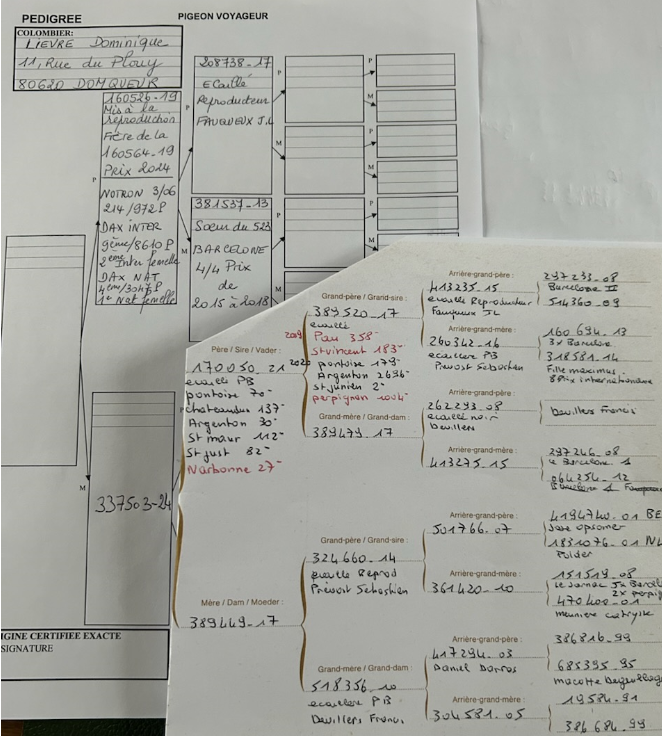 PEDIGREE
PIGEON VOYAGEUR
COLOMBIER:
LIEVRE Dominique
11, Rue du Plouy
80620 DOMQUEUR
160526-19
Mis à la
reproduction
Frère de la
160564-19
Prix 2024
NOTRON 3/06
214/972P
DAX INTER
9ème/8610P
2ème Inter femelle
DAX NAT
4ème/3047P
1e Nat femelle
P
208738-17
Ecaillé
Reproducteur
FAUQUEUX J.L
M
381537-13
Soeur du 523
BARCELONE
4/4 Prix
de
2015 à 2018
P
M
P
M
P
M
P
M
P
M
337503-24
IGINE CERTIFIEE EXACTE
SIGNATURE
Père / Sire / Vader :
170050.21
ecaille PB
pontoise 70-
chateaudun 137-
Argenton 30-
St maur 112-
St just 82-
Narbonne 27-
Grand-père / Grand-sire :
389520.17
ecaillé
Pau 358-
St vincent 183-
2020 pontoise 179-
Argenton 2696-
St junien 2-
perpignan 1004-
Grand-mère / Grand-dam :
389479.17
Arrière-grand-père :
413235.15
ecaille Reproducteur
Fauqueux JL
297233.08
Barcelone II
514360.09
Arrière-grand-mère :
260342.16
ecaillee PB
Prevost Sebastien
160694.13
3x Barcelone
318581.14
Fille maximus
Prix internationaux
Arrière-grand-père :
262293.08
ecaillé noir
Devillers
Devillers Francis
Arrière-grand-mère :
413275.15
297246.08
le Barcelone 1
064254.12
Barcelone 1
Mère / Dam / Moeder :
389449-17
Grand-père / Grand-sire :
324660.14
ecaille Reprod
Prevost Sebastien
Grand-mère / Grand-dam :
518356.10
ecaillee PB
Devillers Francis
Arrière-grand-père :
501766.07
4194740.01 BE
Jose opsomer
1831076.01 NL
Polder
Arrière-grand-mère :
361420.10
151519.08
le Jarnac 5x Barcel
2x perpig
470400-01
meuniere
Arrière-grand-père :
417294.03
Daniel Dorros
386816.99
685395.95
macotte
Arrière-grand-mère :
304581.05
19584.91
386684.99